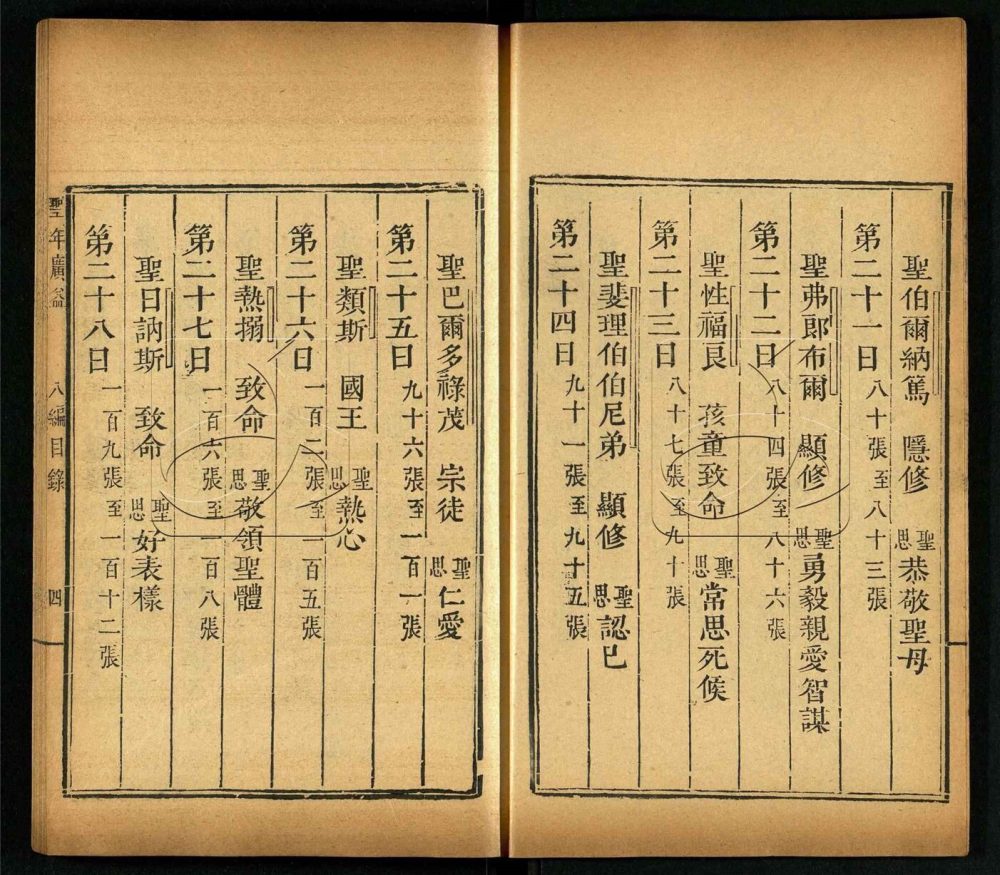 聖伯爾納篤 隱修 聖思恭敬聖母
第二十一日 八十張至八十三張
聖弗郎布爾 顯修 聖思勇毅親愛智謀
第二十二日 八十四張至八十六張
聖性福良 孩童致命 聖思常思死候
第二十三日 八十七張至九十張
聖斐理伯伯尼弟 顯修 聖思認己
第二十四日 九十一張至九十五張
聖巴爾多祿茂 宗徒 聖思仁愛
第二十五日 九十六張至一百一張
聖類斯 國王 聖思熱心
第二十六日 一百二張至一百五張
聖熱搦 致命 聖思敬領聖體
第二十七日 一百六張至一百八張
聖日訥斯 致命 聖思好表樣
第二十八日 一百九張至一百十二張
聖年廣益 八編目錄 四